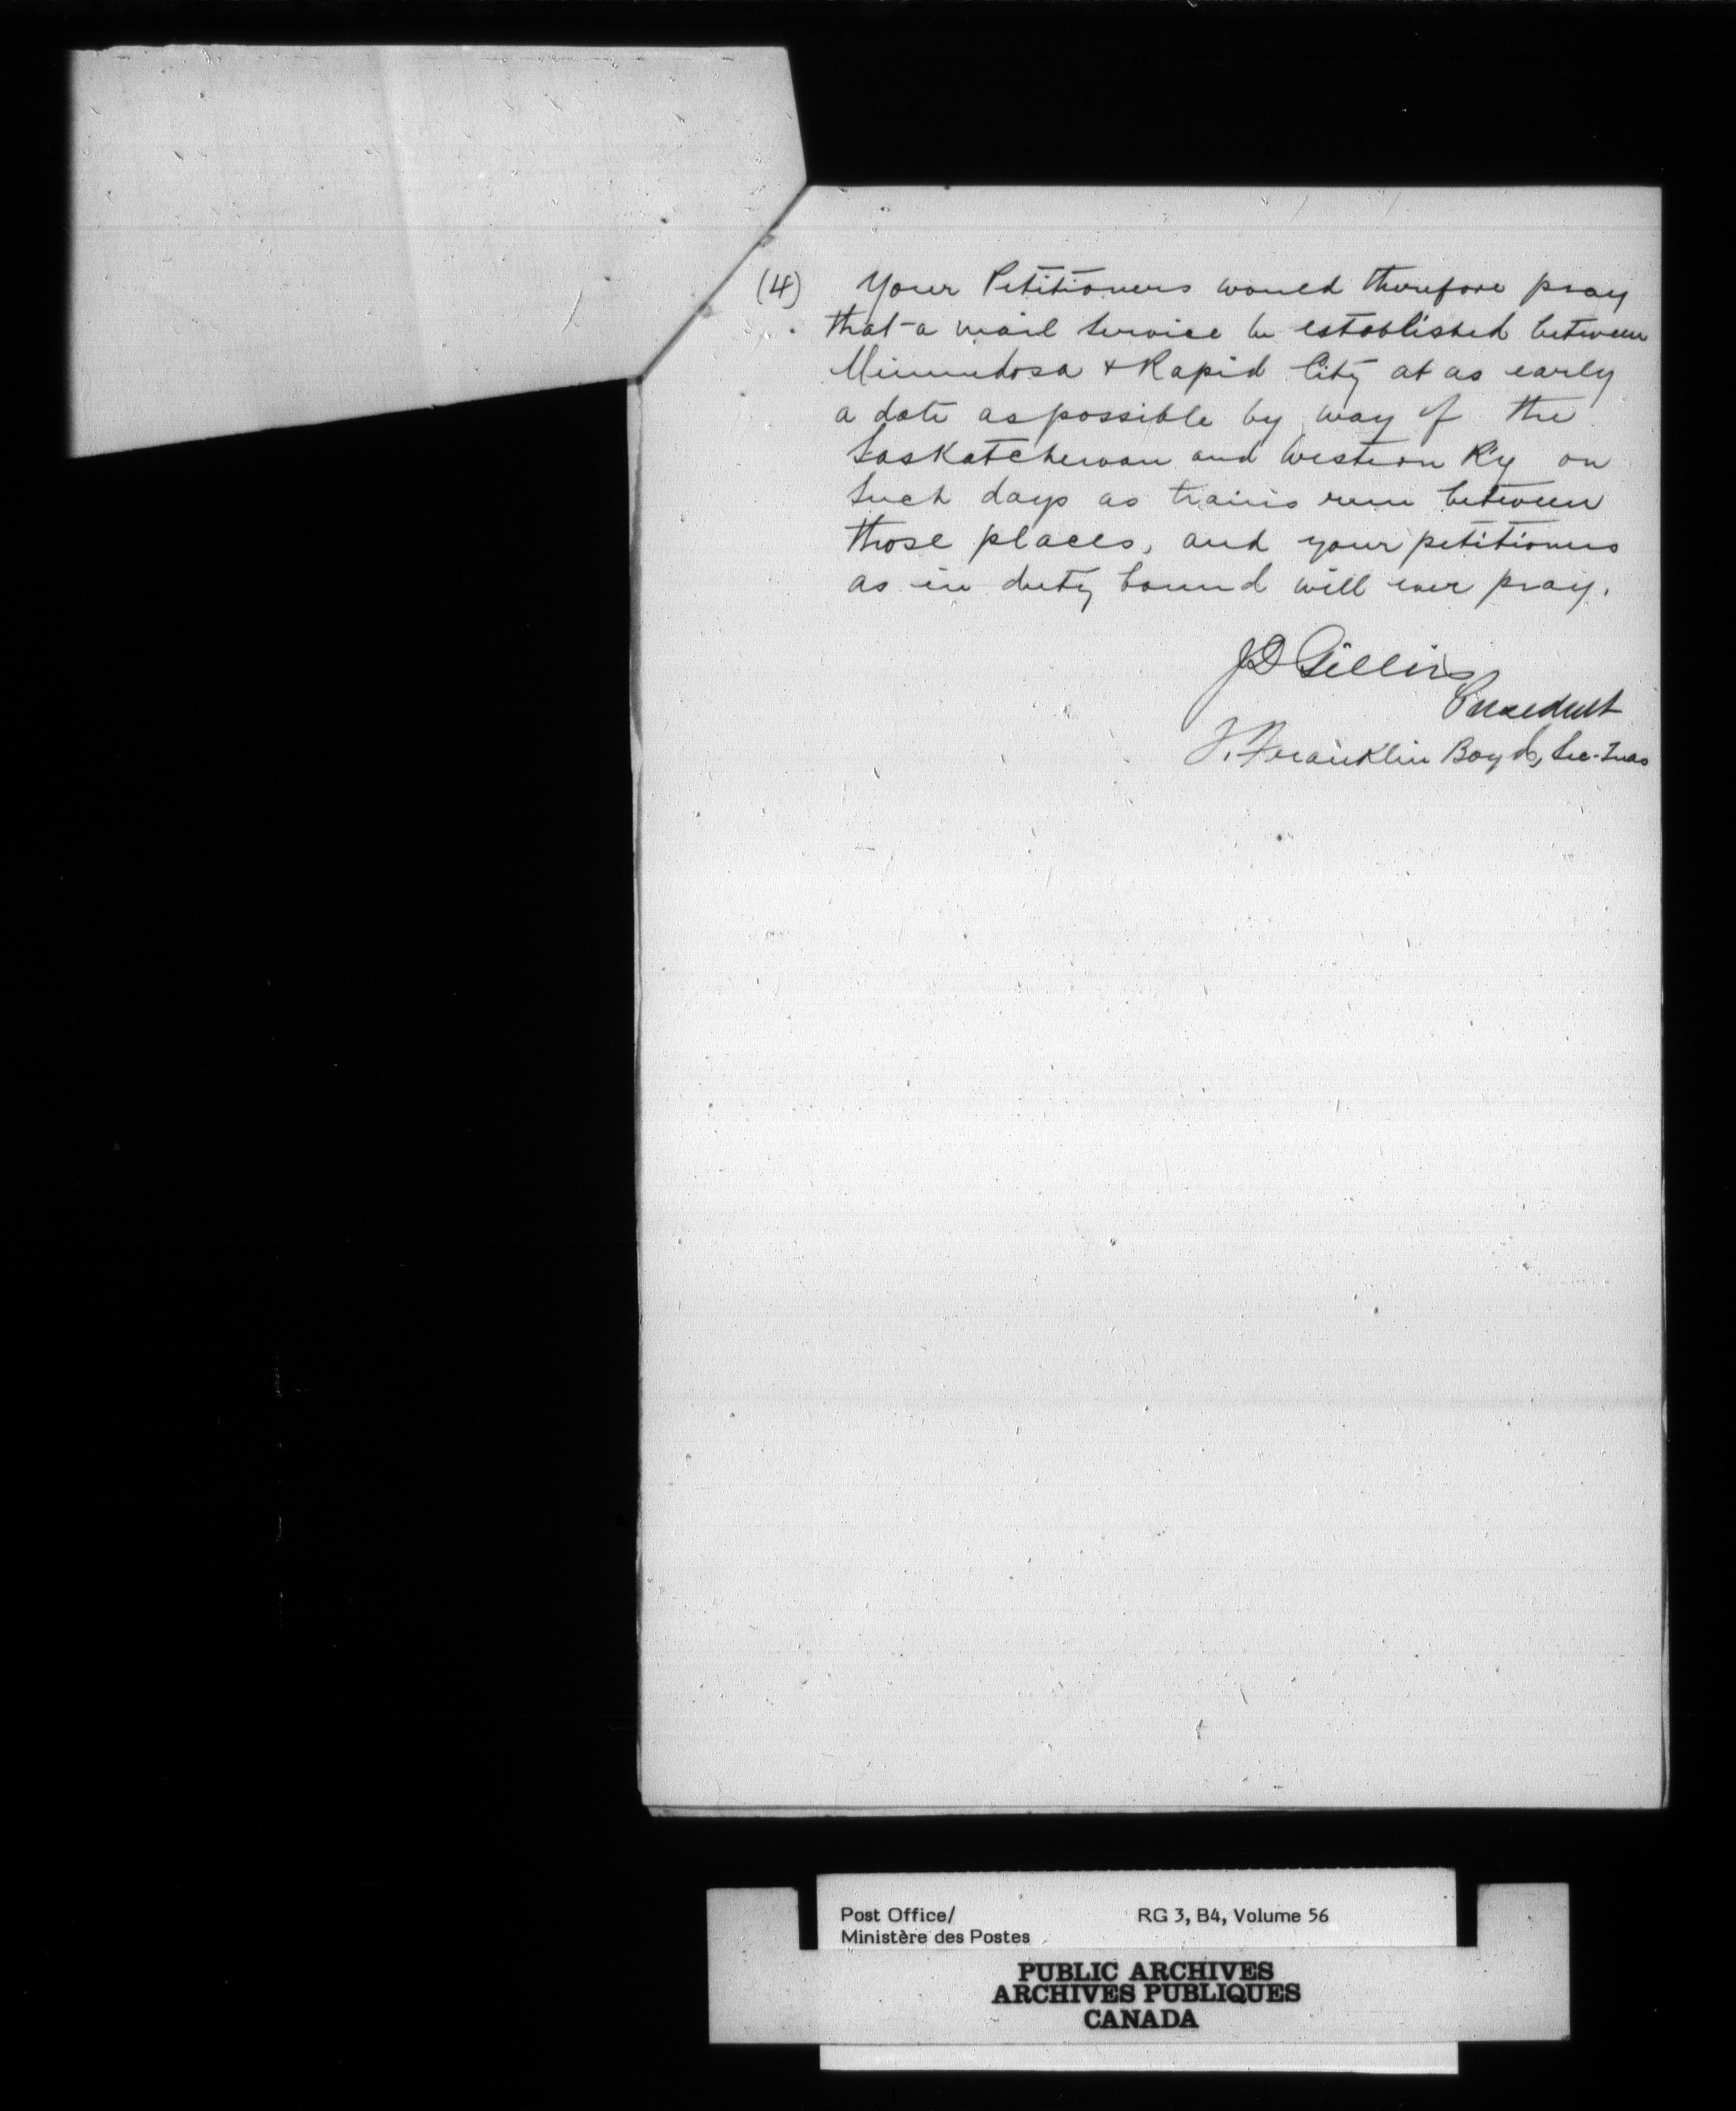 (4) Your Petitioners would therefore pray
that a mail service be established between
Minnedosa & Rapid City at as early
a date as possible by way of the
Saskatchewan and Western R'y on
such days as trains run between
those places, and your petitioners
as in duty bound will ever pray.
JD Gillies
President
T. Franklin Boyd, Sec-Treas
Post Office/ RG 3, B4, Volume 56
Ministère des Postes
PUBLIC ARCHIVES
ARCHIVES PUBLIQUES
CANADA